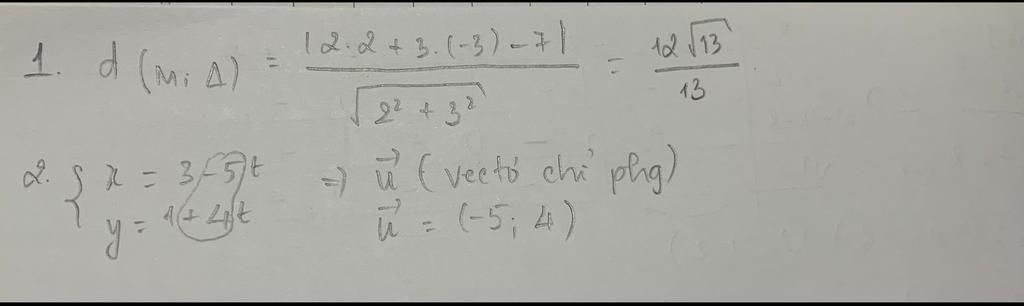 1. d(M; Δ) = |2.2 + 3.(-3) - 7| / √(2² + 3²) = 12√13 / 13
2. { x = 3 - 5t => u⃗ (vectơ chỉ phg)
y = 1 + 4t u⃗ = (-5; 4)